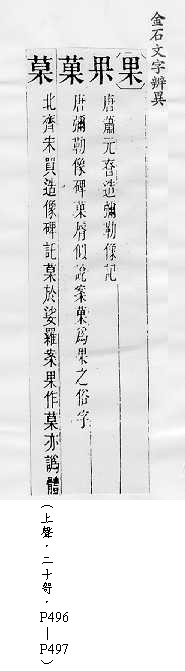 金石文字辨異
果
唐蕭元眘造彌勒像記
菓 唐彌勒像碑菓脣似說案菓為果之俗字
菒 北齊宋買造像碑託菒於娑羅案果作菒亦譌體
（上聲．二十哿．P496－P497）